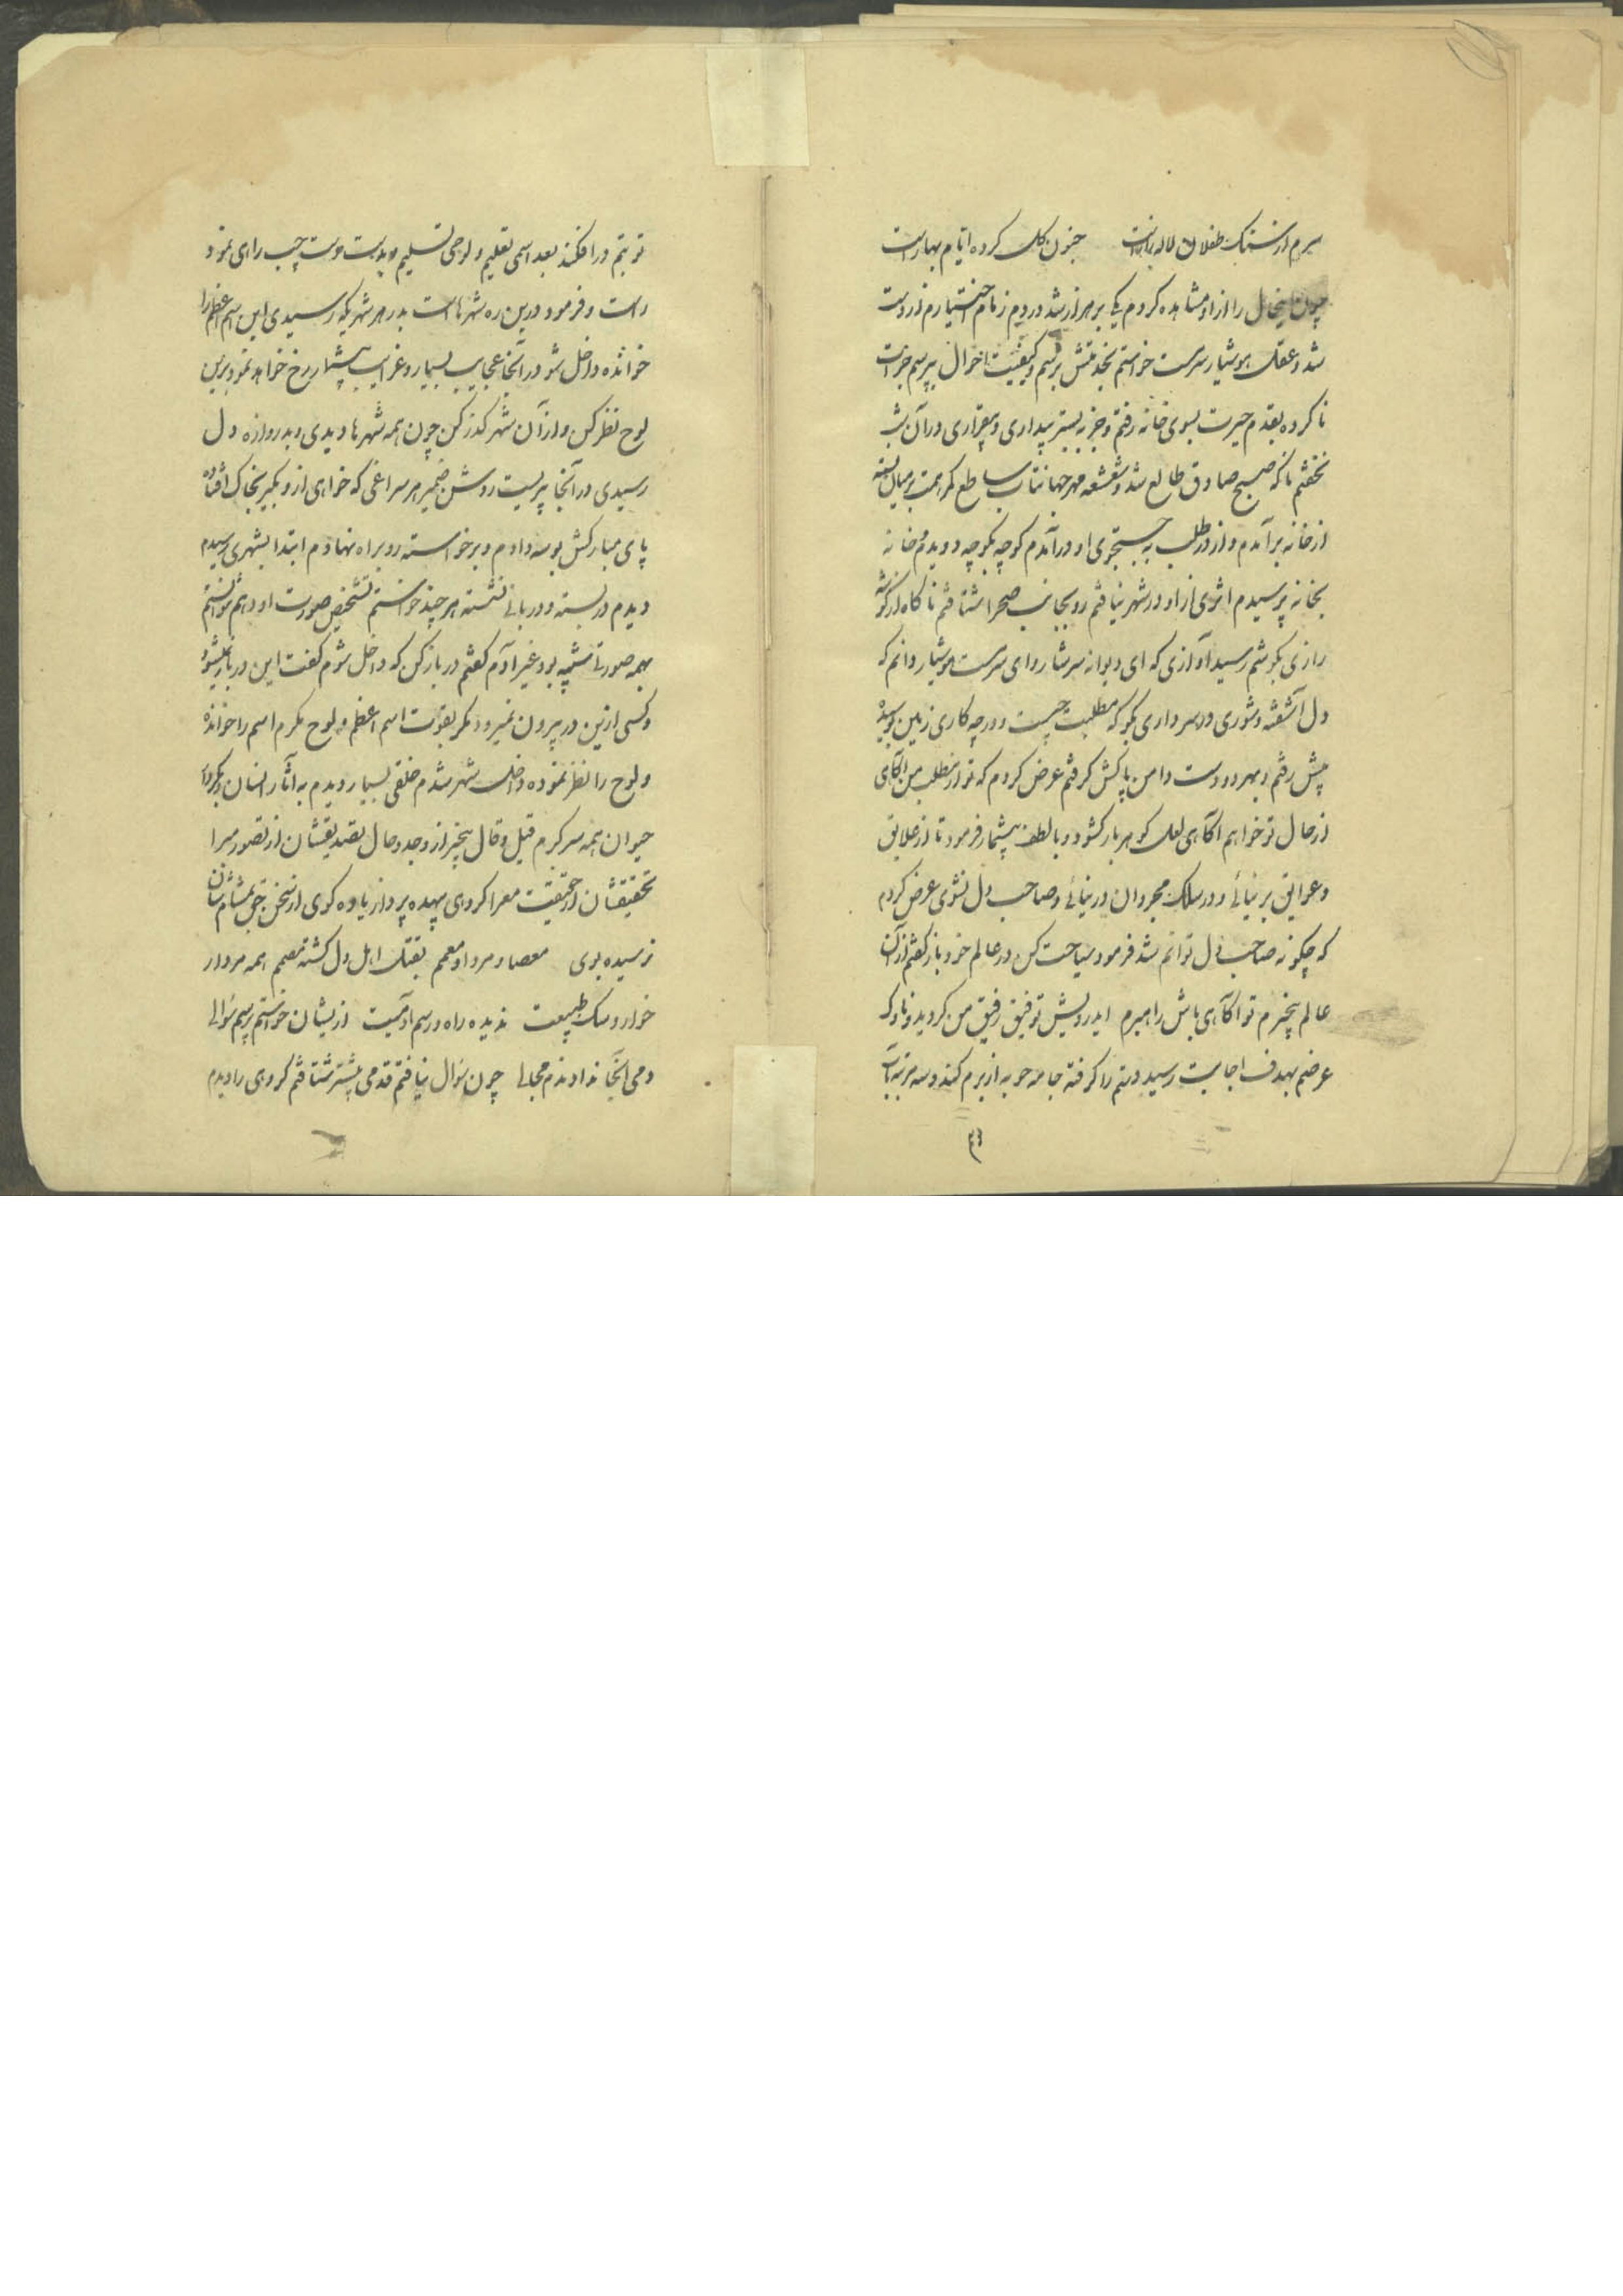 سرم از سنک طفلان لاله زارست جنون کل کرده ایام بهارست
چون اینحال را ازو مشاهده کردم یک بر هزار شد دردم زمام اختیارم از دست
شد و عقل هوشیار سرمست خواستم بخدمتش برسم و کیفیت احوال بپرسم جرات
ناکرده بقدم حیرت بسوی خانه رفتم و جز به بستر بیداری و بیقراری در آن شب
نخفتم تا که صبح صادق طالع شد و شعشعه مهر جهانتاب ساطع کمر همت بر میان بسته
از خانه برآمدم و از در طلب به جستجوی او درآمدم کوچه بکوچه دویدم و خانه
بخانه پرسیدم اثری از او در شهر نیافتم رو بجانب صحرا شتافتم ناکاه از کوشه
رازی بکوشم رسید آوازی که ای دیوانه سرشار و ای سرمست هوشیار دانم که
دل آشفته و شوری در سر داری بکو که مطلبت چیست و در چه کاری زمین بوسیده
پیش رفتم و بهر دو دست دامن پاکش کرفتم عرض کردم که تو از مطلب من آکاهی
از حال تو خواهم آکاهی لعل کوهربار کشود و بالطف بیشمار فرمود تا از علایق
و عوایق بر نیائی و در سلک مجردان در نیائی و صاحب دل نشوی عرض کردم
که چکونه صاحب دل توانم شد فرمود سیاحت کن در عالم خود باز کفتم از آن
عالم بیخبرم تو اکاهی باش راهبرم ایدرویش توفیق رفیق من کردید و ناوک
عرضم بهدف اجابت رسید دستم را کرفته جامه حربه از برم کند و سه مرتبه بآب
۴۳
توبتم در افکند بعد اسمی تعلیم و لوحی تسلیم و بدست دست چپ راهی نمود
راست و فرمود درین ره شهرهاست بدر هر شهریکه رسیدی این اسم اعظم را
خوانده داخل شو در آنجا عجایب بسیار و غرایب بیشمار رخ خواهد نمود برین
لوح نظر کن و از آن شهر کذر کن چون همه شهرها دیدی و بدروازه دل
رسیدی در آنجا پیریست روشن ضمیر هر سراغی که خواهی ازو بکیر بخاک افتاده
پای مبارکش بوسه دادم و برخواسته رو براه نهادم ابتدا بشهری رسیدم
دیدم در بسته و دربانی نشسته هر چند خواستم تشخیص صورت او دهم نتوانستم
بهمه صورتی مشبه بود غیر آدم کفتم در باز کن که داخل شوم کفت این در باز نمیشود
و کسی ازین در بیرون نمیرود مکر بقوت اسم اعظم و لوح مکرم اسم را خوانده
و لوح را نظر نموده داخل شهر شدم خلقی بسیار دیدم به آثار انسان و بکردار
حیوان همه سرکرم قیل و قال بیخبر از وجد و حال تصدیقشان از تصور مبرا
تحقیقشان از حقیقت معرا کروهی بیهده پرداز یاوه کوی از سخن حق بمشام شان
نرسیده بوی معصا و مردا و معمم بقتل اهل دل کشته مصمم همه مردار
خوار و سک طبیعت ندیده راه و رسم آدمیت ازیشان خواستم پرسم سوالی
دمی آنجا ندادندم مجالی چون سوال نیافتم قدمی پیشتر شتافتم کروهی را دیدم